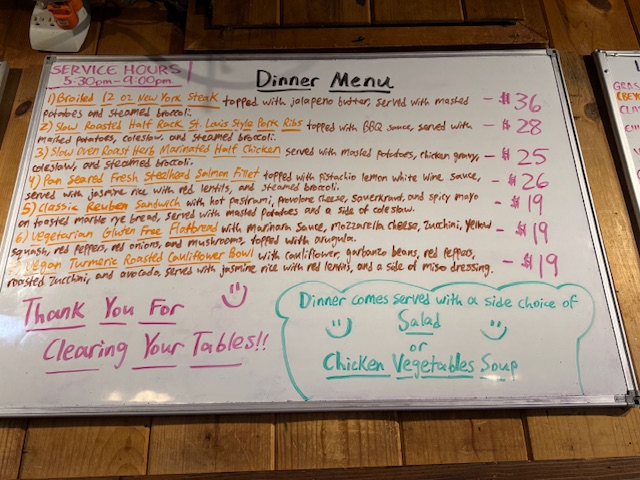 SERVICE HOURS
5:30pm-9:00pm
Dinner Menu
1) Broiled 12 oz New York Steak topped with jalapeno butter, served with mashed - $36
potatoes and steamed broccoli.
2) Slow Roasted Half Rack St. Louis Style Pork Ribs topped with BBQ sauce, served with - $28
mashed potatoes, coleslaw, and steamed broccoli.
3) Slow Oven Roast Herb Marinated Half Chicken served with mashed potatoes, chicken gravy, - $25
coleslaw, and steamed broccoli.
4) Pan Seared Fresh Steelhead Salmon Fillet topped with pistachio lemon white wine sauce, - $26
served with jasmine rice with red lentils, and steamed broccoli.
5) Classic Reuben Sandwich with hot pastrami, provolone cheese, sauerkraut, and spicy mayo - $19
on toasted marble rye bread, served with mashed potatoes and a side of coleslaw.
6) Vegetarian Gluten Free Flatbread with marinara sauce, mozzarella cheese, zucchini, yellow - $19
squash, red peppers, red onions, and mushrooms, topped with arugula.
7) Vegan Turmeric Roasted Cauliflower Bowl with cauliflower, garbanzo beans, red peppers, - $19
roasted zucchini, and avocado, served with jasmine rice with red lentils, and a side of miso dressing.
Thank You For
Clearing Your Tables!!
Dinner comes served with a side choice of
Salad
or
Chicken Vegetables Soup